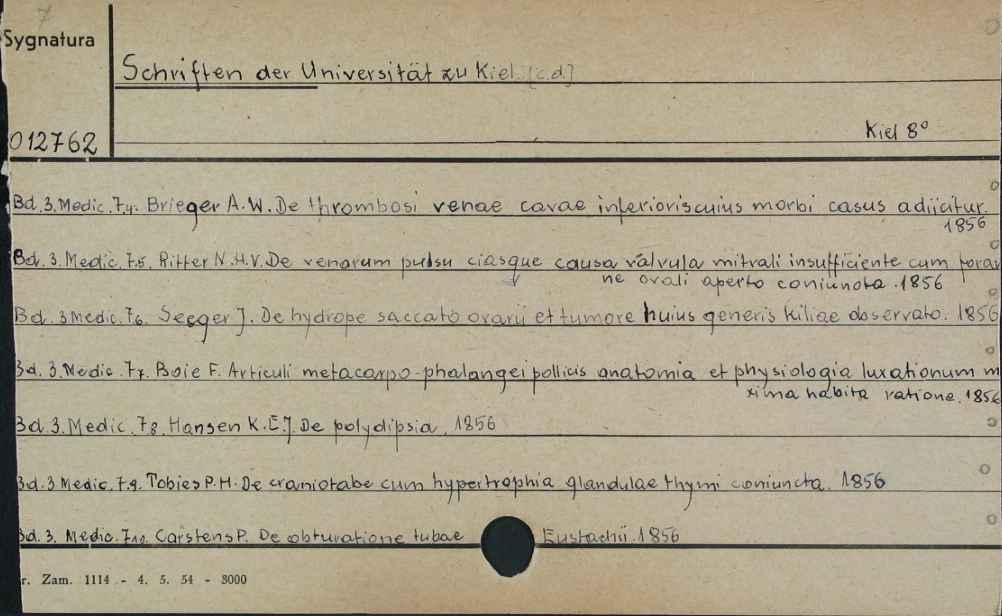 7
Sygnatura
Schriften der Universität zu Kiel [c.d.]
012762
Kiel 8°
Bd. 3. Medic. 7₄. Brieger A.W. De thrombosi venae cavae inferioris cuius morbi casus adiicitur.
1856
Bd. 3. Medic. 7₅. Ritter N.H.V. De venarum pulsu ciasque causa valvula mitrali insufficiente cum foram
ne ovali aperto coniuncta. 1856
Bd. 3 Medic. 7₆. Seeger J. De hydrope saccato ovarii et tumore huius generis Kiliae observato. 1856
Bd. 3. Medic. 7₇. Boie F. Articuli metacarpo-phalangei pollicis anatomia et physiologia luxationum m
xima habita ratione. 1856
Bd. 3. Medic. 7₈. Hansen K.E.J. De polydipsia. 1856
Bd. 3 Medic. 7.₉. Tobies P.H. De craniotabe cum hypertrophia glandulae thymi coniuncta. 1856
Bd. 3. Medic. 7₁₀. Carstens P. De obturatione tubae Eustachii. 1856
r. Zam. 1114 - 4. 5. 54 - 3000